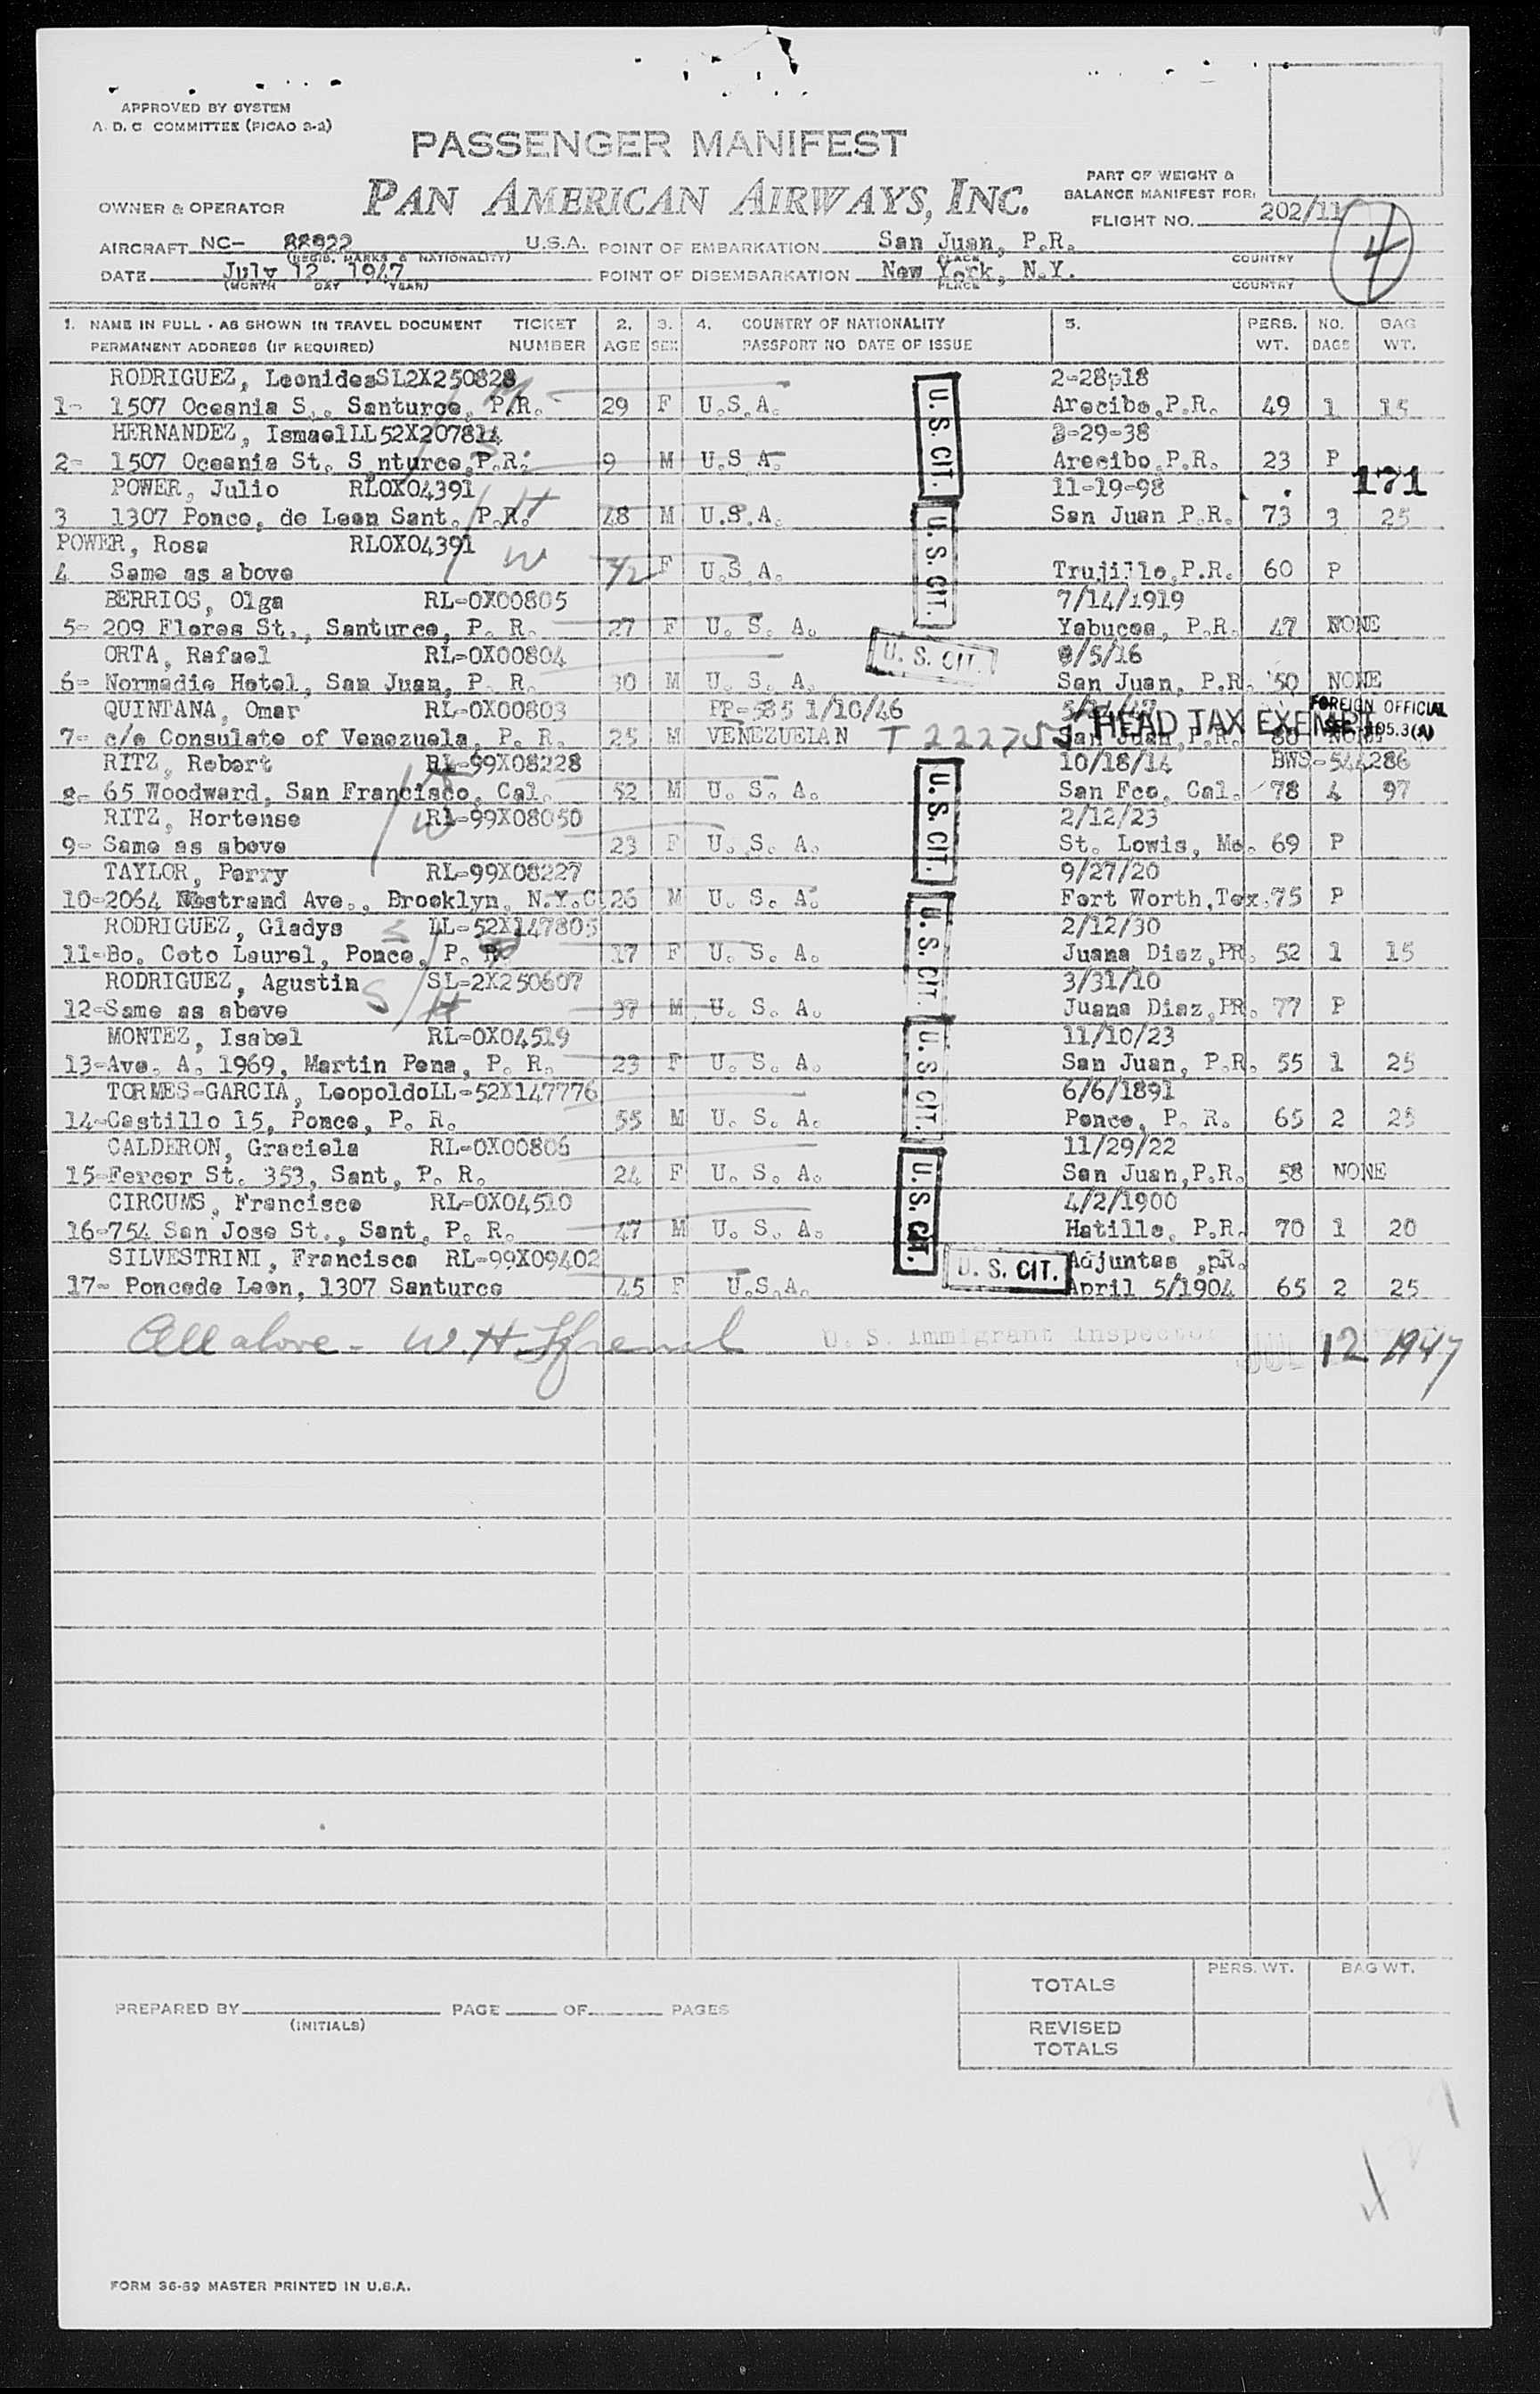 APPROVED BY SYSTEM
A. D. C. COMMITTEE (PICAO 3-2)
PASSENGER MANIFEST
PAN AMERICAN AIRWAYS, INC.
PART OF WEIGHT &
BALANCE MANIFEST FOR:
OWNER & OPERATOR
FLIGHT NO. 202/11
4
AIRCRAFT NC- 88922 U.S.A. POINT OF EMBARKATION San Juan, P.R.
(REGIS. MARKS & NATIONALITY) PLACE COUNTRY
DATE July 12 1947 POINT OF DISEMBARKATION New York, N.Y.
(MONTH DAY YEAR) PLACE COUNTRY
1. NAME IN FULL - AS SHOWN IN TRAVEL DOCUMENT TICKET 2. 3. 4. COUNTRY OF NATIONALITY 5. PERS. NO. BAG
PERMANENT ADDRESS (IF REQUIRED) NUMBER AGE SEX PASSPORT NO DATE OF ISSUE WT. BAGS WT.
RODRIGUEZ, LeonidesSL2X250828 2-28-18
1- 1507 Oceania S,. Santurce, P.R. 29 F U.S.A. Arecibo,P.R. 49 1 15
U.S. CIT.
HERNANDEZ, IsmaelLL52X207814 3-29-38
2- 1507 Oceania St. S nturce,P.R. 9 M U.S A. Arecibo,P.R. 23 P
171
POWER, Julio RLOX04391 11-19-98
3 1307 Ponce, de Leon Sant. P.R. 48 M U.S.A. San Juan P.R. 73 3 25
U.S. CIT.
POWER, Rosa RLOX04391
4 Same as above 42 F U.S A. Trujillo,P.R. 60 P
BERRIOS, Olga RL-0X00805 7/14/1919
5- 209 Flores St., Santurce, P. R. 27 F U. S. A. Yabucoa, P.R. 47 NONE
ORTA, Rafael RL-0X00804 U. S. CIT. 9/5/16
6- Normadie Hotel, San Juan, P. R. 30 M U. S. A. San Juan, P.R. 50 NONE
QUINTANA, Omar RL-0X00803 PP-585 1/10/46 FOREIGN OFFICIAL
HEAD TAX EXEMPT 105.3(A)
7- c/o Consulate of Venezuela, P. R. 25 M VENEZUELAN T 222755 San Juan, P.R. 80 NONE
RITZ, Robert RL-99X08228 10/18/14 BWS-544286
8- 65 Woodward, San Francisco, Cal. 52 M U. S. A. San Fco, Cal. 78 4 97
U.S. CIT.
RITZ, Hortense RL-99X08050 2/12/23
9- Same as above 23 F U. S. A. St. Lowis, Mo. 69 P
TAYLOR, Perry RL-99X08227 9/27/20
10-2064 Nostrand Ave., Brooklyn, N.Y.C. 26 M U. S. A. Fort Worth,Tex. 75 P
U.S. CIT.
RODRIGUEZ, Gladys LL-52X147805 2/12/30
11-Bo. Coto Laurel, Ponce, P. R. 17 F U. S. A. Juana Diaz,PR. 52 1 15
RODRIGUEZ, Agustin SL-2X250607 3/31/10
12-Same as above 37 M U. S. A. Juana Diaz,PR. 77 P
MONTEZ, Isabel RL-0X04519 11/10/23
13-Ave. A. 1969, Martin Pena, P. R. 23 F U. S. A. San Juan, P.R. 55 1 25
U.S. CIT.
TORMES-GARCIA, LeopoldoLL-52X147776 6/6/1891
14-Castillo 15, Ponce, P. R. 55 M U. S. A. Ponce, P. R. 65 2 25
CALDERON, Graciela RL-0X00806 11/29/22
15-Fercer St. 353, Sant, P. R. 24 F U. S. A. San Juan,P.R. 58 NONE
U.S. CIT.
CIRCUMS, Francisco RL-0X04510 4/2/1900
16-754 San Jose St., Sant, P. R. 47 M U. S. A. Hatillo, P.R. 70 1 20
SILVESTRINI, Francisca RL-99X09402 U. S. CIT. Adjuntas ,pR.
17- Poncede Leon, 1307 Santurce 45 F U.S.A. April 5/1904 65 2 25
All above - W. H. U. S. Immigrant Inspector JUL 12 1947
TOTALS PERS. WT. BAG WT.
PREPARED BY PAGE OF PAGES
(INITIALS)
REVISED
TOTALS
FORM 36-59 MASTER PRINTED IN U.S.A.